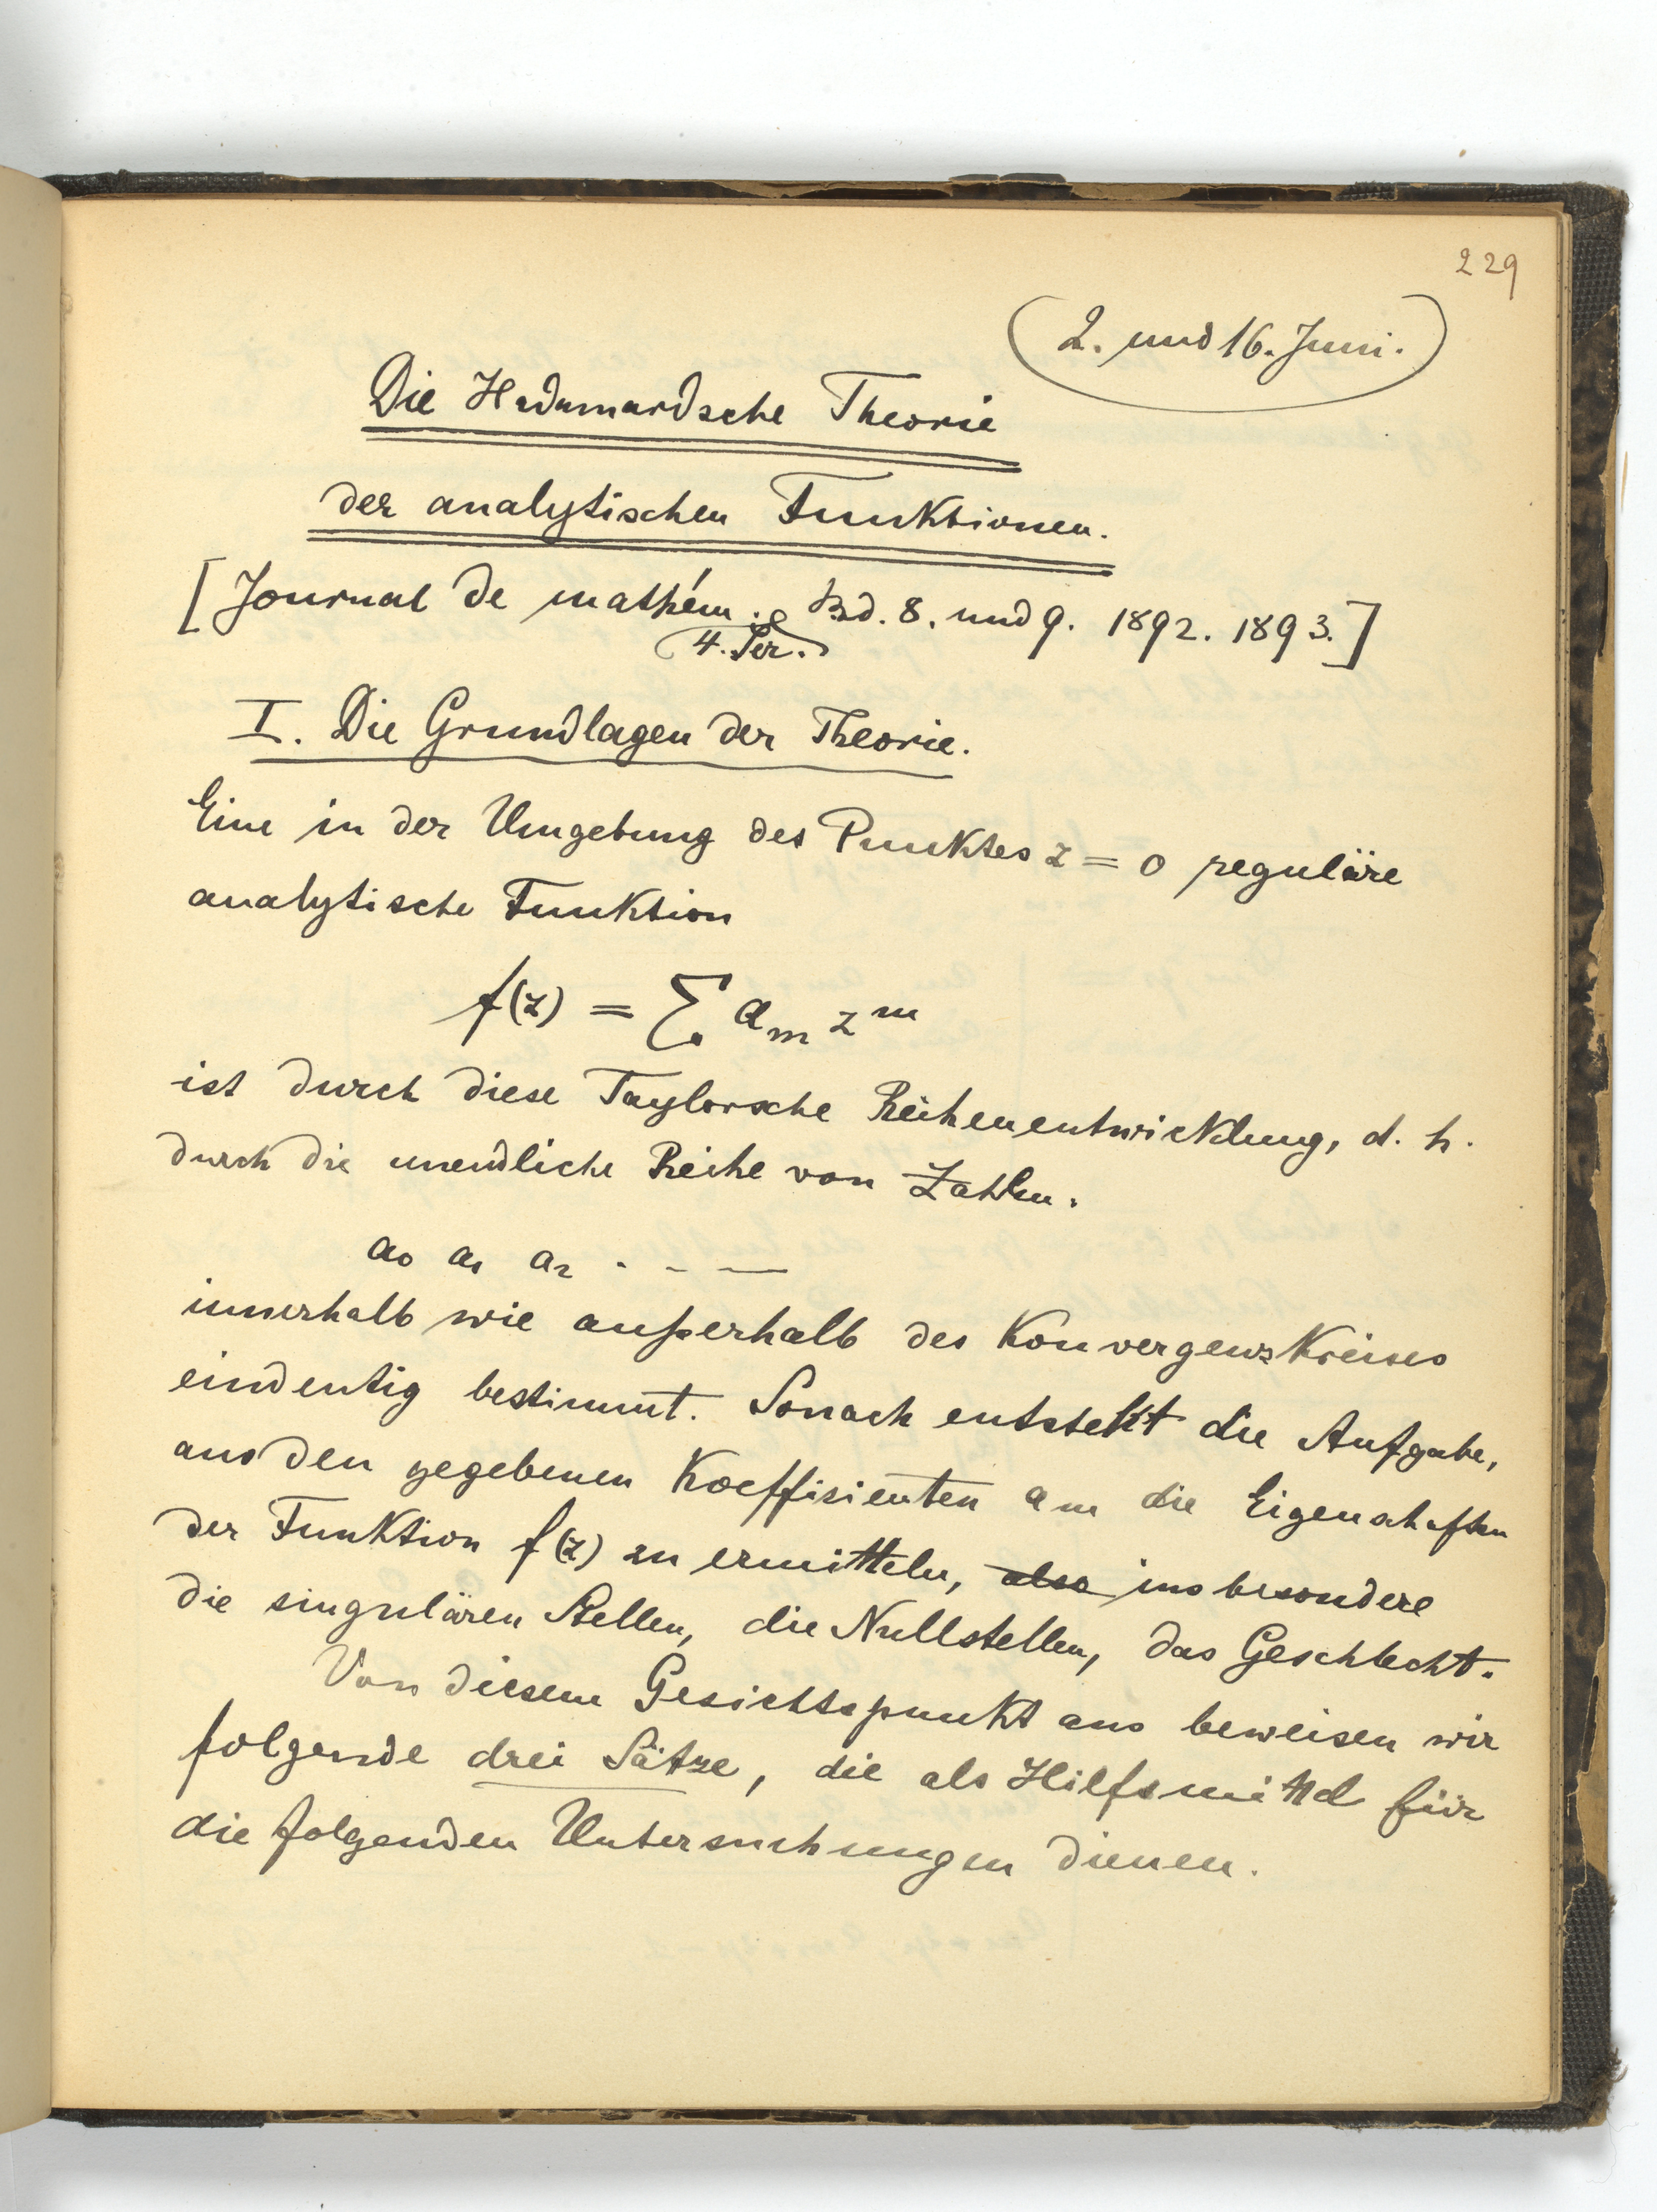 229
(2. und 16. Juni.)
Die Hadamardsche Theorie
der analytischen Funktionen.
[Journal de mathém. Bd. 8. und 9. 1892. 1893.]
4. Ser.
I. Die Grundlagen der Theorie.
Eine in der Umgebung des Punktes z = 0 reguläre
analytische Funktion
f(z) = Σ aₘ zᵐ
ist durch diese Taylorsche Reihenentwicklung, d. h.
durch die unendliche Reihe von Zahlen.
a₀ a₁ a₂ . - - —
innerhalb wie außerhalb des Konvergenzkreises
eindeutig bestimmt. Sonach entsteht die Aufgabe,
aus den gegebenen Koeffizienten aₘ die Eigenschaften
der Funktion f(z) zu ermitteln, also insbesondere
die singulären Stellen, die Nullstellen, das Geschlecht.
Von diesem Gesichtspunkt aus beweisen wir
folgende drei Sätze, die als Hilfsmittel für
die folgenden Untersuchungen dienen.